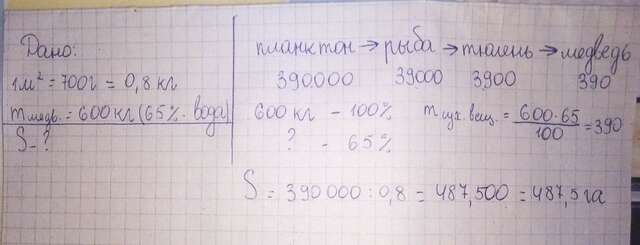 Дано:
1м² = 700г = 0,8 кг
m медв. = 600 кг (65% вода)
S - ?
планктон → рыба → тюлень → медведь
390000 39000 3900 390
600 кг - 100%
? - 65%
m сух. вещ. = 600·65 / 100 = 390
S = 390 000 : 0,8 = 487,500 = 487,5 га